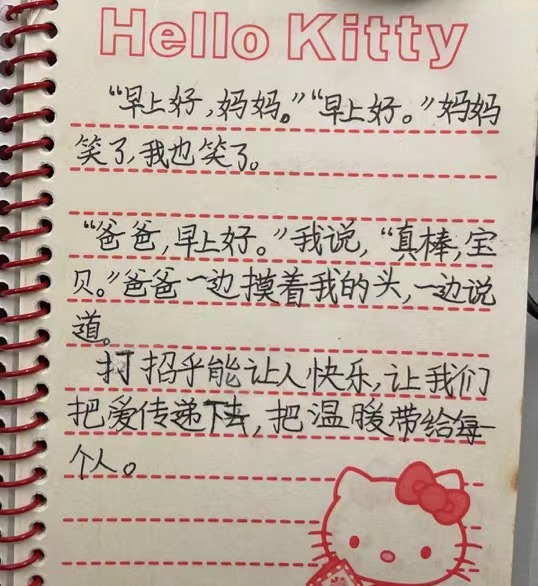 Hello Kitty
“早上好，妈妈。”“早上好。”妈妈
笑了，我也笑了。
“爸爸，早上好。”我说，“真棒，宝
贝。”爸爸一边摸着我的头，一边说
道。
打招乎能让人快乐，让我们
把爱传递下去，把温暖带给每一
个人。